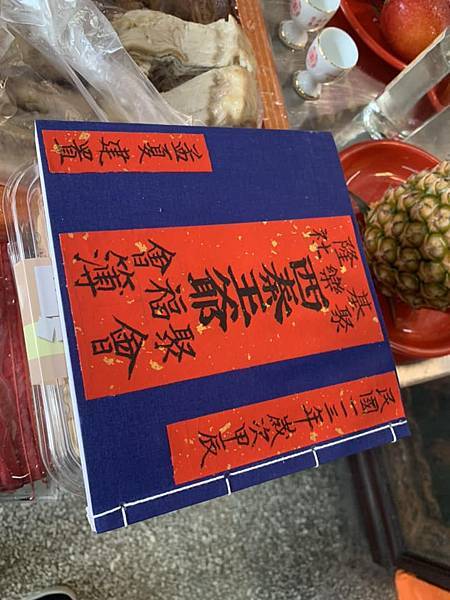 民國一一三年歲次甲辰
基隆
聚樂社
西秦王爺
聚福會
會簿
孟夏建置